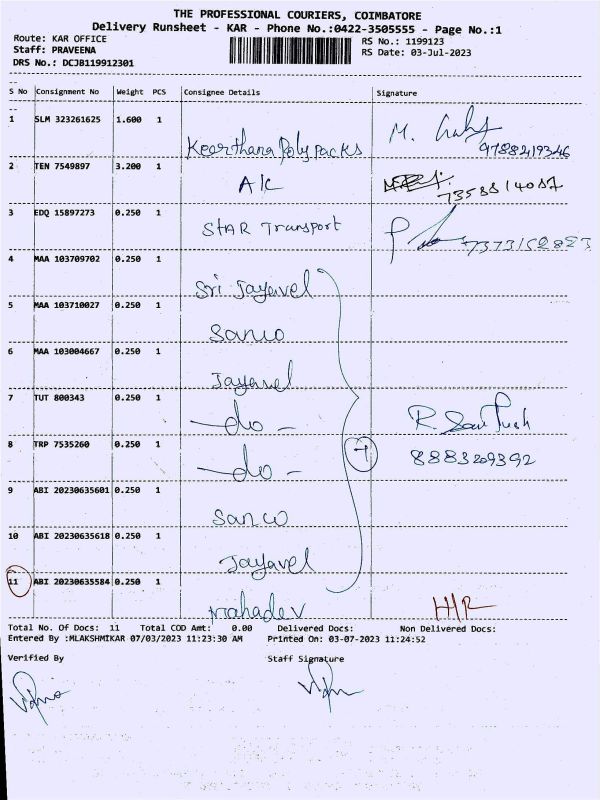 THE PROFESSIONAL COURIERS, COIMBATORE
Delivery Runsheet - KAR - Phone No.:0422-3505555 - Page No.:1
Route: KAR OFFICE
Staff: PRAVEENA
DRS No.: DCJB119912301
RS No.: 1199123
RS Date: 03-Jul-2023
S No Consignment No Weight PCS Consignee Details Signature
1 SLM 323261625 1.600 1
Keerthana Poly packs 9788219346
2 TEN 7549897 3.200 1
A/C 7358814087
3 EDQ 15897273 0.250 1
STAR Transport
4 MAA 103709702 0.250 1
Sri Jayavel
5 MAA 103710027 0.250 1
Sanco
6 MAA 103004667 0.250 1
Jayavel
7 TUT 800343 0.250 1
- do -
8 TRP 7535260 0.250 1
8883209392
- do -
9 ABI 20230635601 0.250 1
Sanco
10 ABI 20230635618 0.250 1
Jayavel
11 ABI 20230635584 0.250 1
Mahadev
Total No. Of Docs: 11 Total COD Amt: 0.00 Delivered Docs: Non Delivered Docs:
Entered By :MLAKSHMIKAR 07/03/2023 11:23:30 AM Printed On: 03-07-2023 11:24:52
Verified By Staff Signature